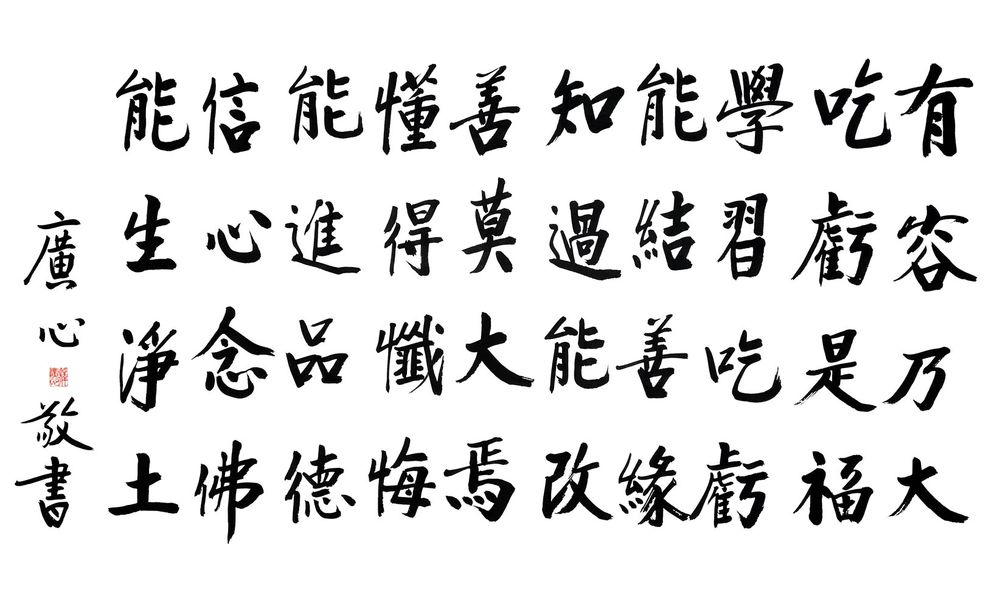 有容乃大
吃虧是福
學習吃虧
能結善緣
知過能改
善莫大焉
懂得懺悔
能進品德
信心念佛
能生淨土
廣心敬書